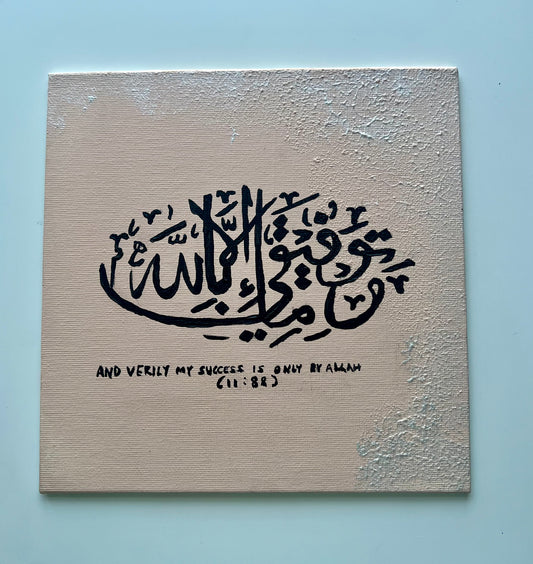 توفيقي إلا بالله
AND VERILY MY SUCCESS IS ONLY BY ALLAH
(11:88)